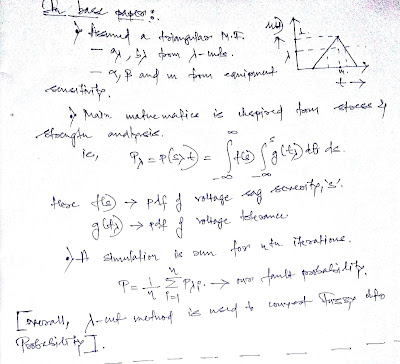 In base paper:
•) Assumed a triangular M.F.
— aλ, bλ from λ-cuts.
— α, β and m from equipment
sensitivity.
μ(t)
1
λ
m
t →
•) Main mathematics is inspired from stress &
strength analysis.
ie, Pλ = P(s>t) = ∫_{-∞}^{∞} f(s) ∫_{-∞}^{s} g(tλ) dt ds.
Here f(s) → pdf of voltage sag severity, 's'.
g(tλ) → pdf of voltage tolerance
•) A simulation is run for n^{th} iterations.
P = 1/n Σ_{i=1}^{n} Pλi. → our fault probability.
[Overall, λ-cut method is used to convert Fuzzy dfn
Probability].